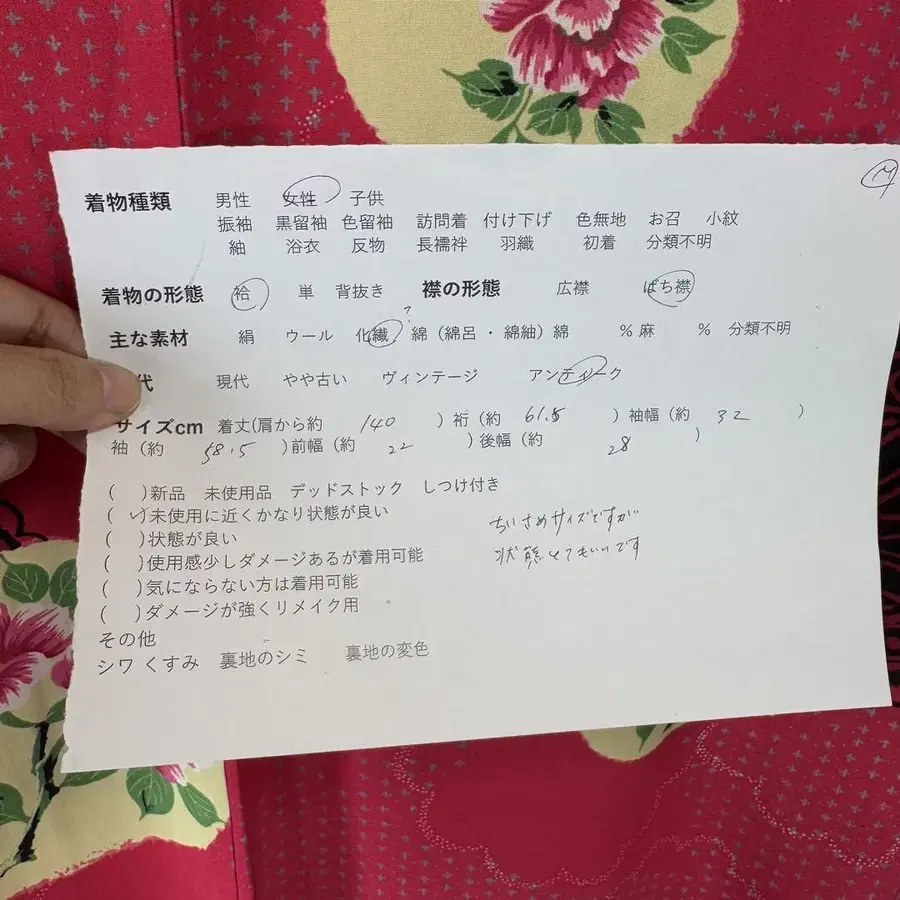 M
着物種類 男性 女性 子供
振袖 黒留袖 色留袖 訪問着 付け下げ 色無地 お召 小紋
紬 浴衣 反物 長襦袢 羽織 初着 分類不明
着物の形態 袷 単 背抜き 襟の形態 広襟 ばち襟
?
主な素材 絹 ウール 化繊 綿（綿呂・綿紬）綿 %麻 % 分類不明
代 現代 やや古い ヴィンテージ アンティーク
サイズcm 着丈(肩から約 140 ）裄（約 61.5 ）袖幅（約 32 ）
袖（約 58.5 ）前幅（約 22 ）後幅（約 28 ）
( )新品 未使用品 デッドストック しつけ付き
(✓)未使用に近くかなり状態が良い
( )状態が良い
( )使用感少しダメージあるが着用可能
( )気にならない方は着用可能
( )ダメージが強くリメイク用
ちいさめサイズですが
状態とてもいいです
その他
シワ くすみ 裏地のシミ 裏地の変色